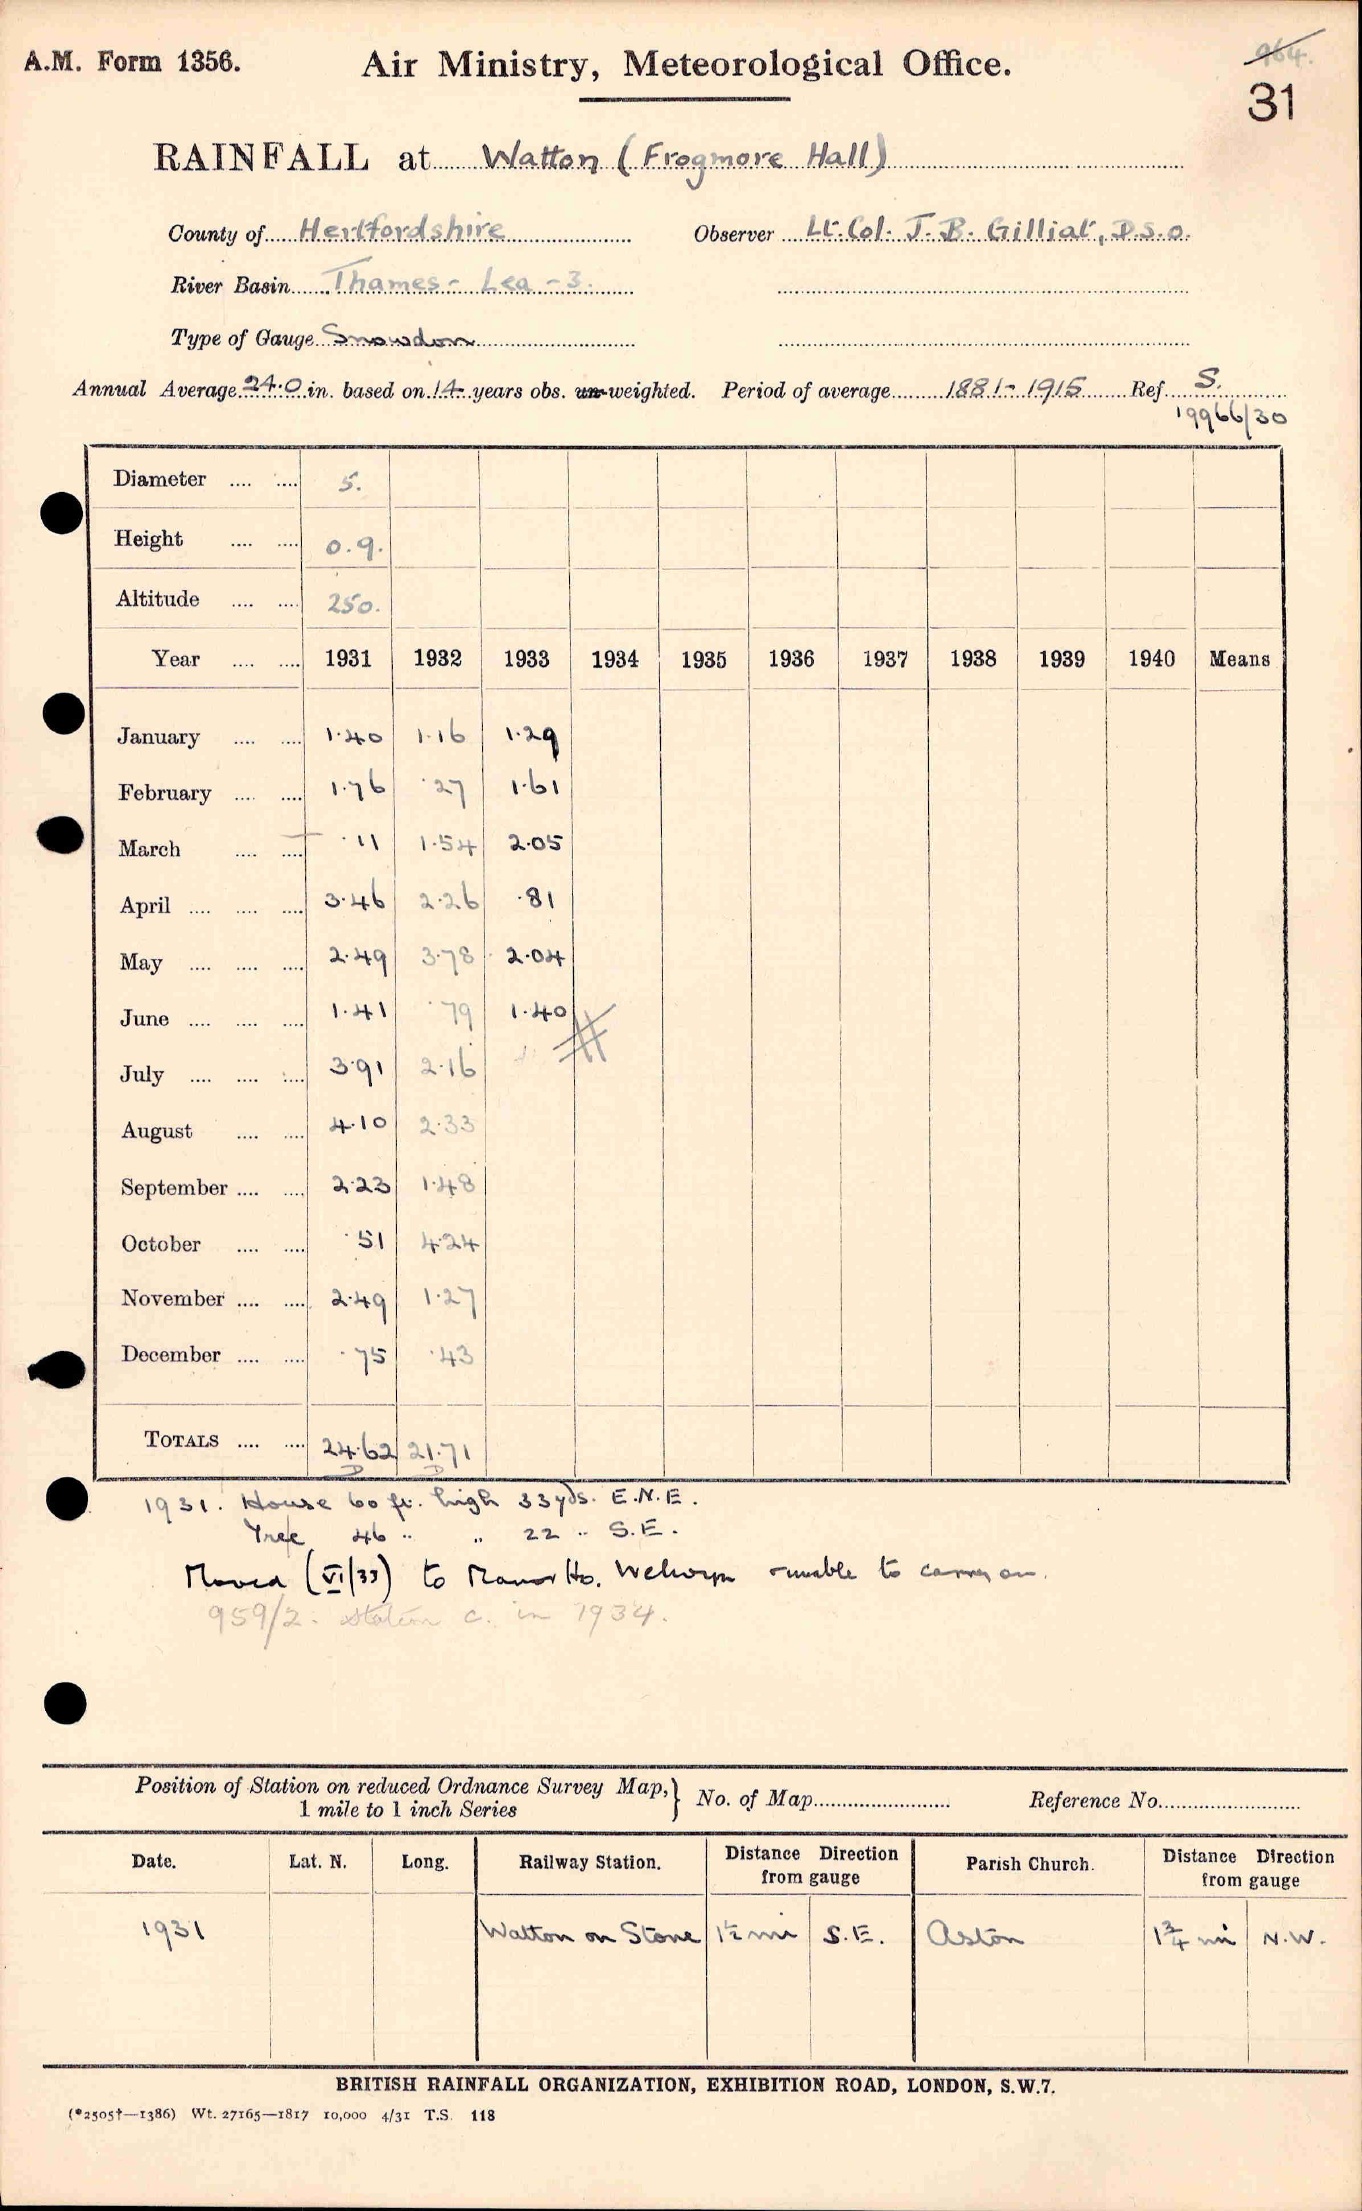 A.M. Form 1356.
Air Ministry, Meteorological Office.
964.
31
RAINFALL at Watton (Frogmore Hall)
County of Hertfordshire Observer Lt. Col. J. B. Gilliat, D.S.O.
River Basin Thames - Lea - 3.
Type of Gauge Snowdon
Annual Average 24.0 in. based on 14 years obs. un-weighted. Period of average 1881-1915 Ref. S.
19966/30
Diameter .... .... 5.
Height .... .... 0.9.
Altitude .... .... 250.
Year .... .... 1931 1932 1933 1934 1935 1936 1937 1938 1939 1940 Means
January .... .... 1.40 1.16 1.29
February .... .... 1.76 .27 1.61
March .... .... .11 1.54 2.05
April .... .... .... 3.46 2.26 .81
May .... .... .... 2.49 3.78 2.04
June .... .... .... 1.41 .79 1.40
July .... .... .... 3.91 2.16
August .... .... 4.10 2.33
September .... .... 2.23 1.48
October .... .... .51 4.24
November .... .... 2.49 1.27
December .... .... .75 .43
TOTALS .... .... 24.62 21.71
1931. House 60 ft. high 33 yds. E.N.E.
Tree 46 " " 22 " S.E.
Moved (VI/33) to Manor Ho. Welwyn - unable to carry on.
959/2. station c. in 1934.
Position of Station on reduced Ordnance Survey Map,} No. of Map Reference No.
1 mile to 1 inch Series
Date. Lat. N. Long. Railway Station. Distance Direction from gauge Parish Church. Distance Direction from gauge
1931 Watton on Stone 1½ mi S.E. Aston 1¾ mi N.W.
BRITISH RAINFALL ORGANIZATION, EXHIBITION ROAD, LONDON, S.W.7.
(*2505†—1386) Wt. 27165—1817 10,000 4/31 T.S. 118